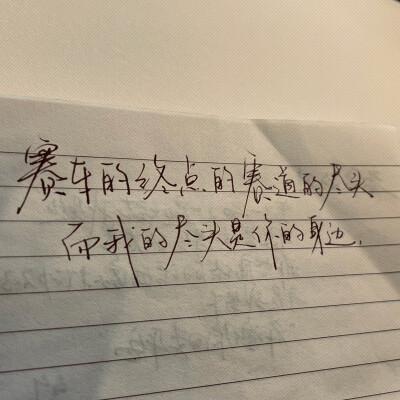 赛车的终点的赛道的尽头
而我的尽头是你的身边.